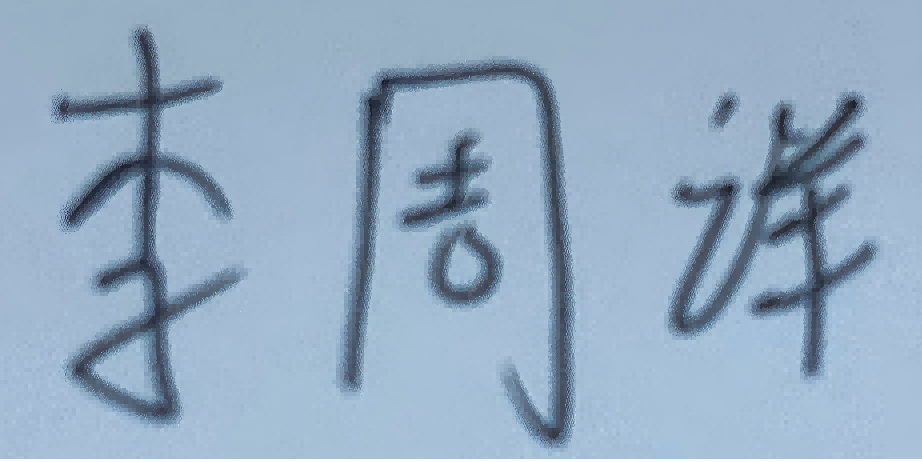 李周详